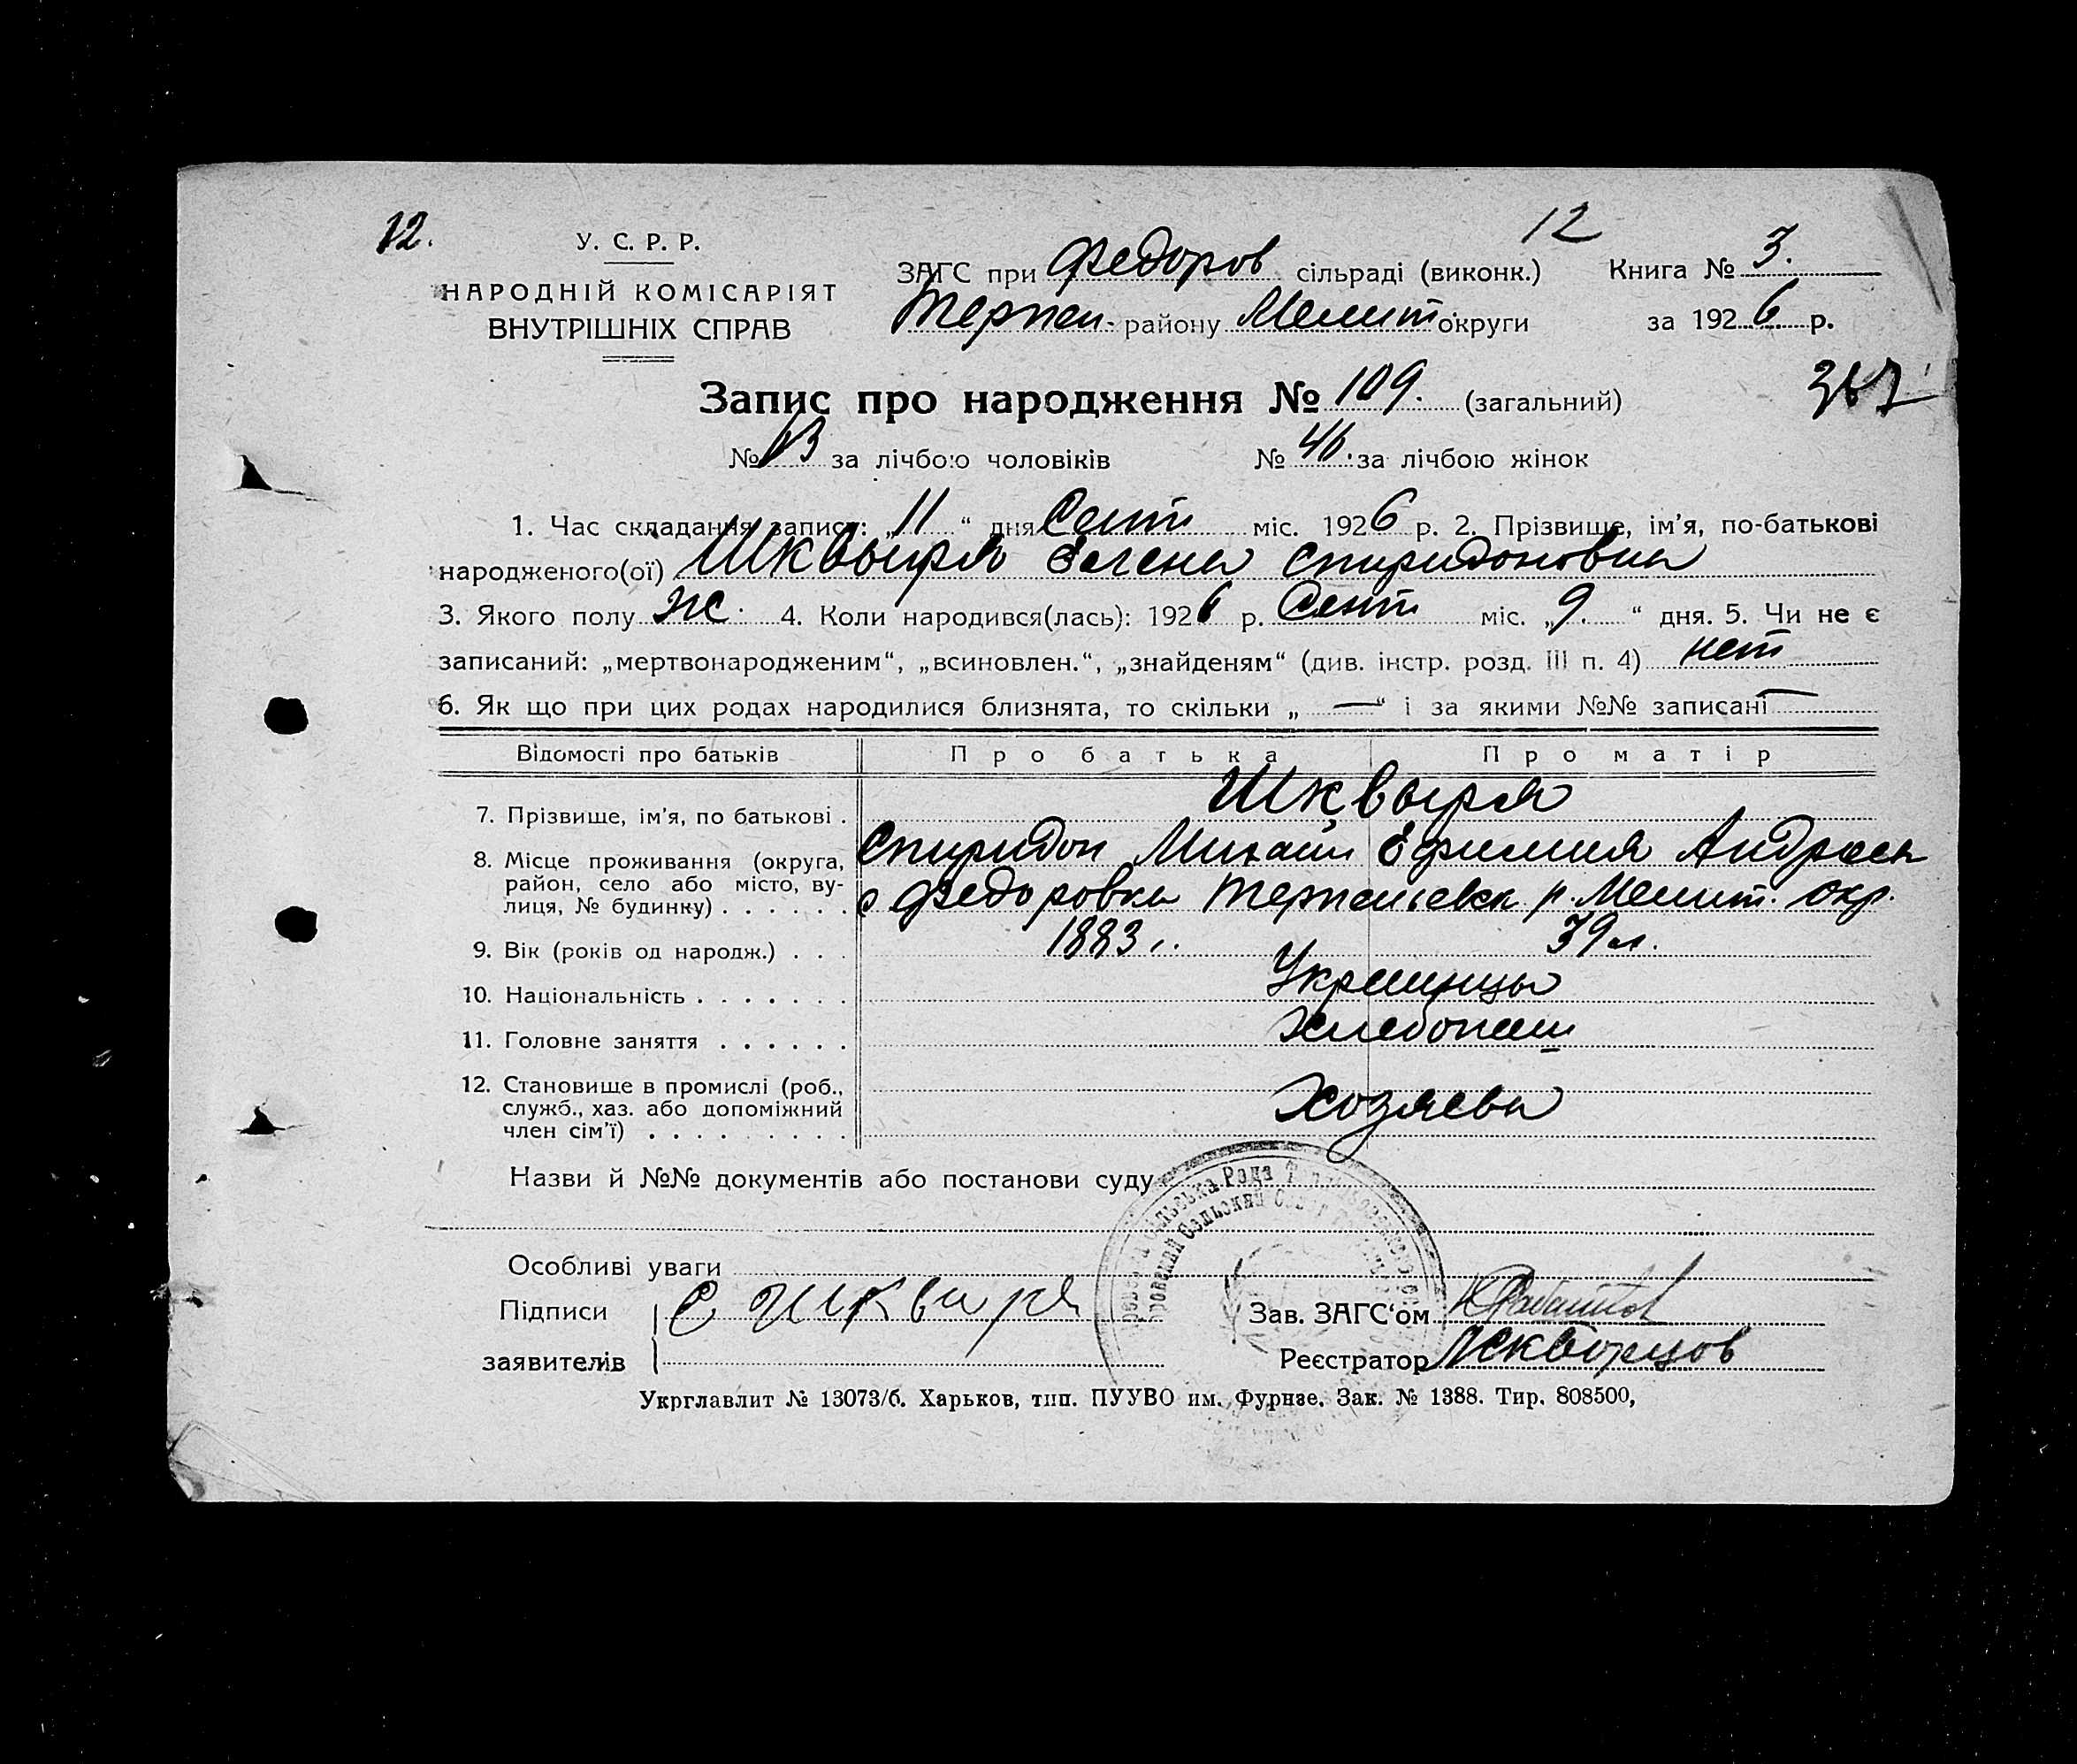 12.
У. С. Р. Р.
НАРОДНІЙ КОМІСАРІЯТ
ВНУТРІШНІХ СПРАВ
12
ЗАГС при Федоров сільраді (виконк.) Книга № 3.
Терпен. району Мелит. округи за 1926 р.
Запис про народження № 109. (загальний)
367
№ за лічбою чоловіків № 46. за лічбою жінок
1. Час складання запису: „11“ дня Сент міс. 1926 р. 2. Прізвище, ім’я, по-батькові
народженого(ої) Шквыря Елена Спиридоновна
3. Якого полу ж. 4. Коли народився(лась): 1926 р. Сент міс. „9.“ дня. 5. Чи не є
записаний: „мертвонародженим“, „всиновлен.“, „знайденям“ (див. інстр. розд. III п. 4) нет
6. Як що при цих родах народилися близнята, то скільки „ — “ і за якими №№ записані —
Відомості про батьків Про батька Про матір
7. Прізвище, ім’я, по батькові . Шквыря
Спиридон Михаил Ефимия Андреев
8. Місце проживання (округа, район, село або місто, ву-
лиця, № будинку) . . . . . . с Федоровка р. Мелит. окр.
9. Вік (років од народж.) . . . 1883 г. 39 л.
10. Національність . . . . . . . Украинцы
11. Головне заняття . . . . . . Хлебопаш
12. Становище в промислі (роб.,
служб., хаз. або допоміжний
член сім’ї) . . . . . . . . . Хозяева
Назви й №№ документів або постанови суду
Особливі уваги
Підписи С Шквиря Зав. ЗАГС‘ом
заявителів Реєстратор Скворцов
Укрглавлит № 13073/б. Харьков, тип. ПУУВО им. Фурнзе. Зак. № 1388. Тир. 808500,